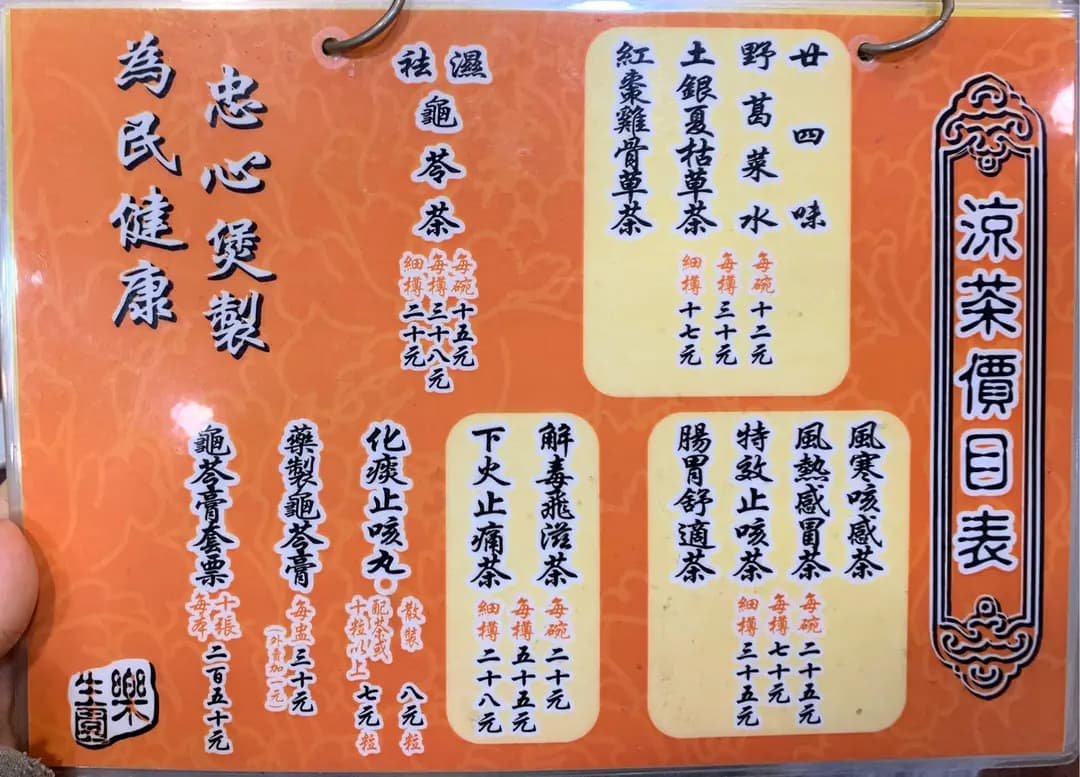 涼茶價目表
廿四味
野葛菜水
土銀夏枯草茶
紅棗雞骨草茶
每碗十二元
每樽三十元
細樽十七元
祛濕
龜苓茶
每碗十五元
每樽三十八元
細樽二十元
忠心煲製
為民健康
風寒咳感茶
風熱感冒茶
特效止咳茶
腸胃舒適茶
每碗二十五元
每樽七十元
細樽三十五元
解毒飛滋茶
下火止痛茶
每碗二十元
每樽五十五元
細樽二十八元
化痰止咳丸
散裝 八元粒
配茶或
十粒以上 七元粒
藥製龜苓膏
每盅三十元
(外賣加一元)
龜苓膏套票
十張
每本 二百五十元
樂
生園